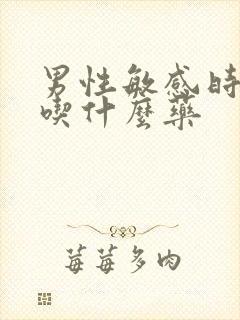 男性敏感時
喫什麼藥
莓莓多肉